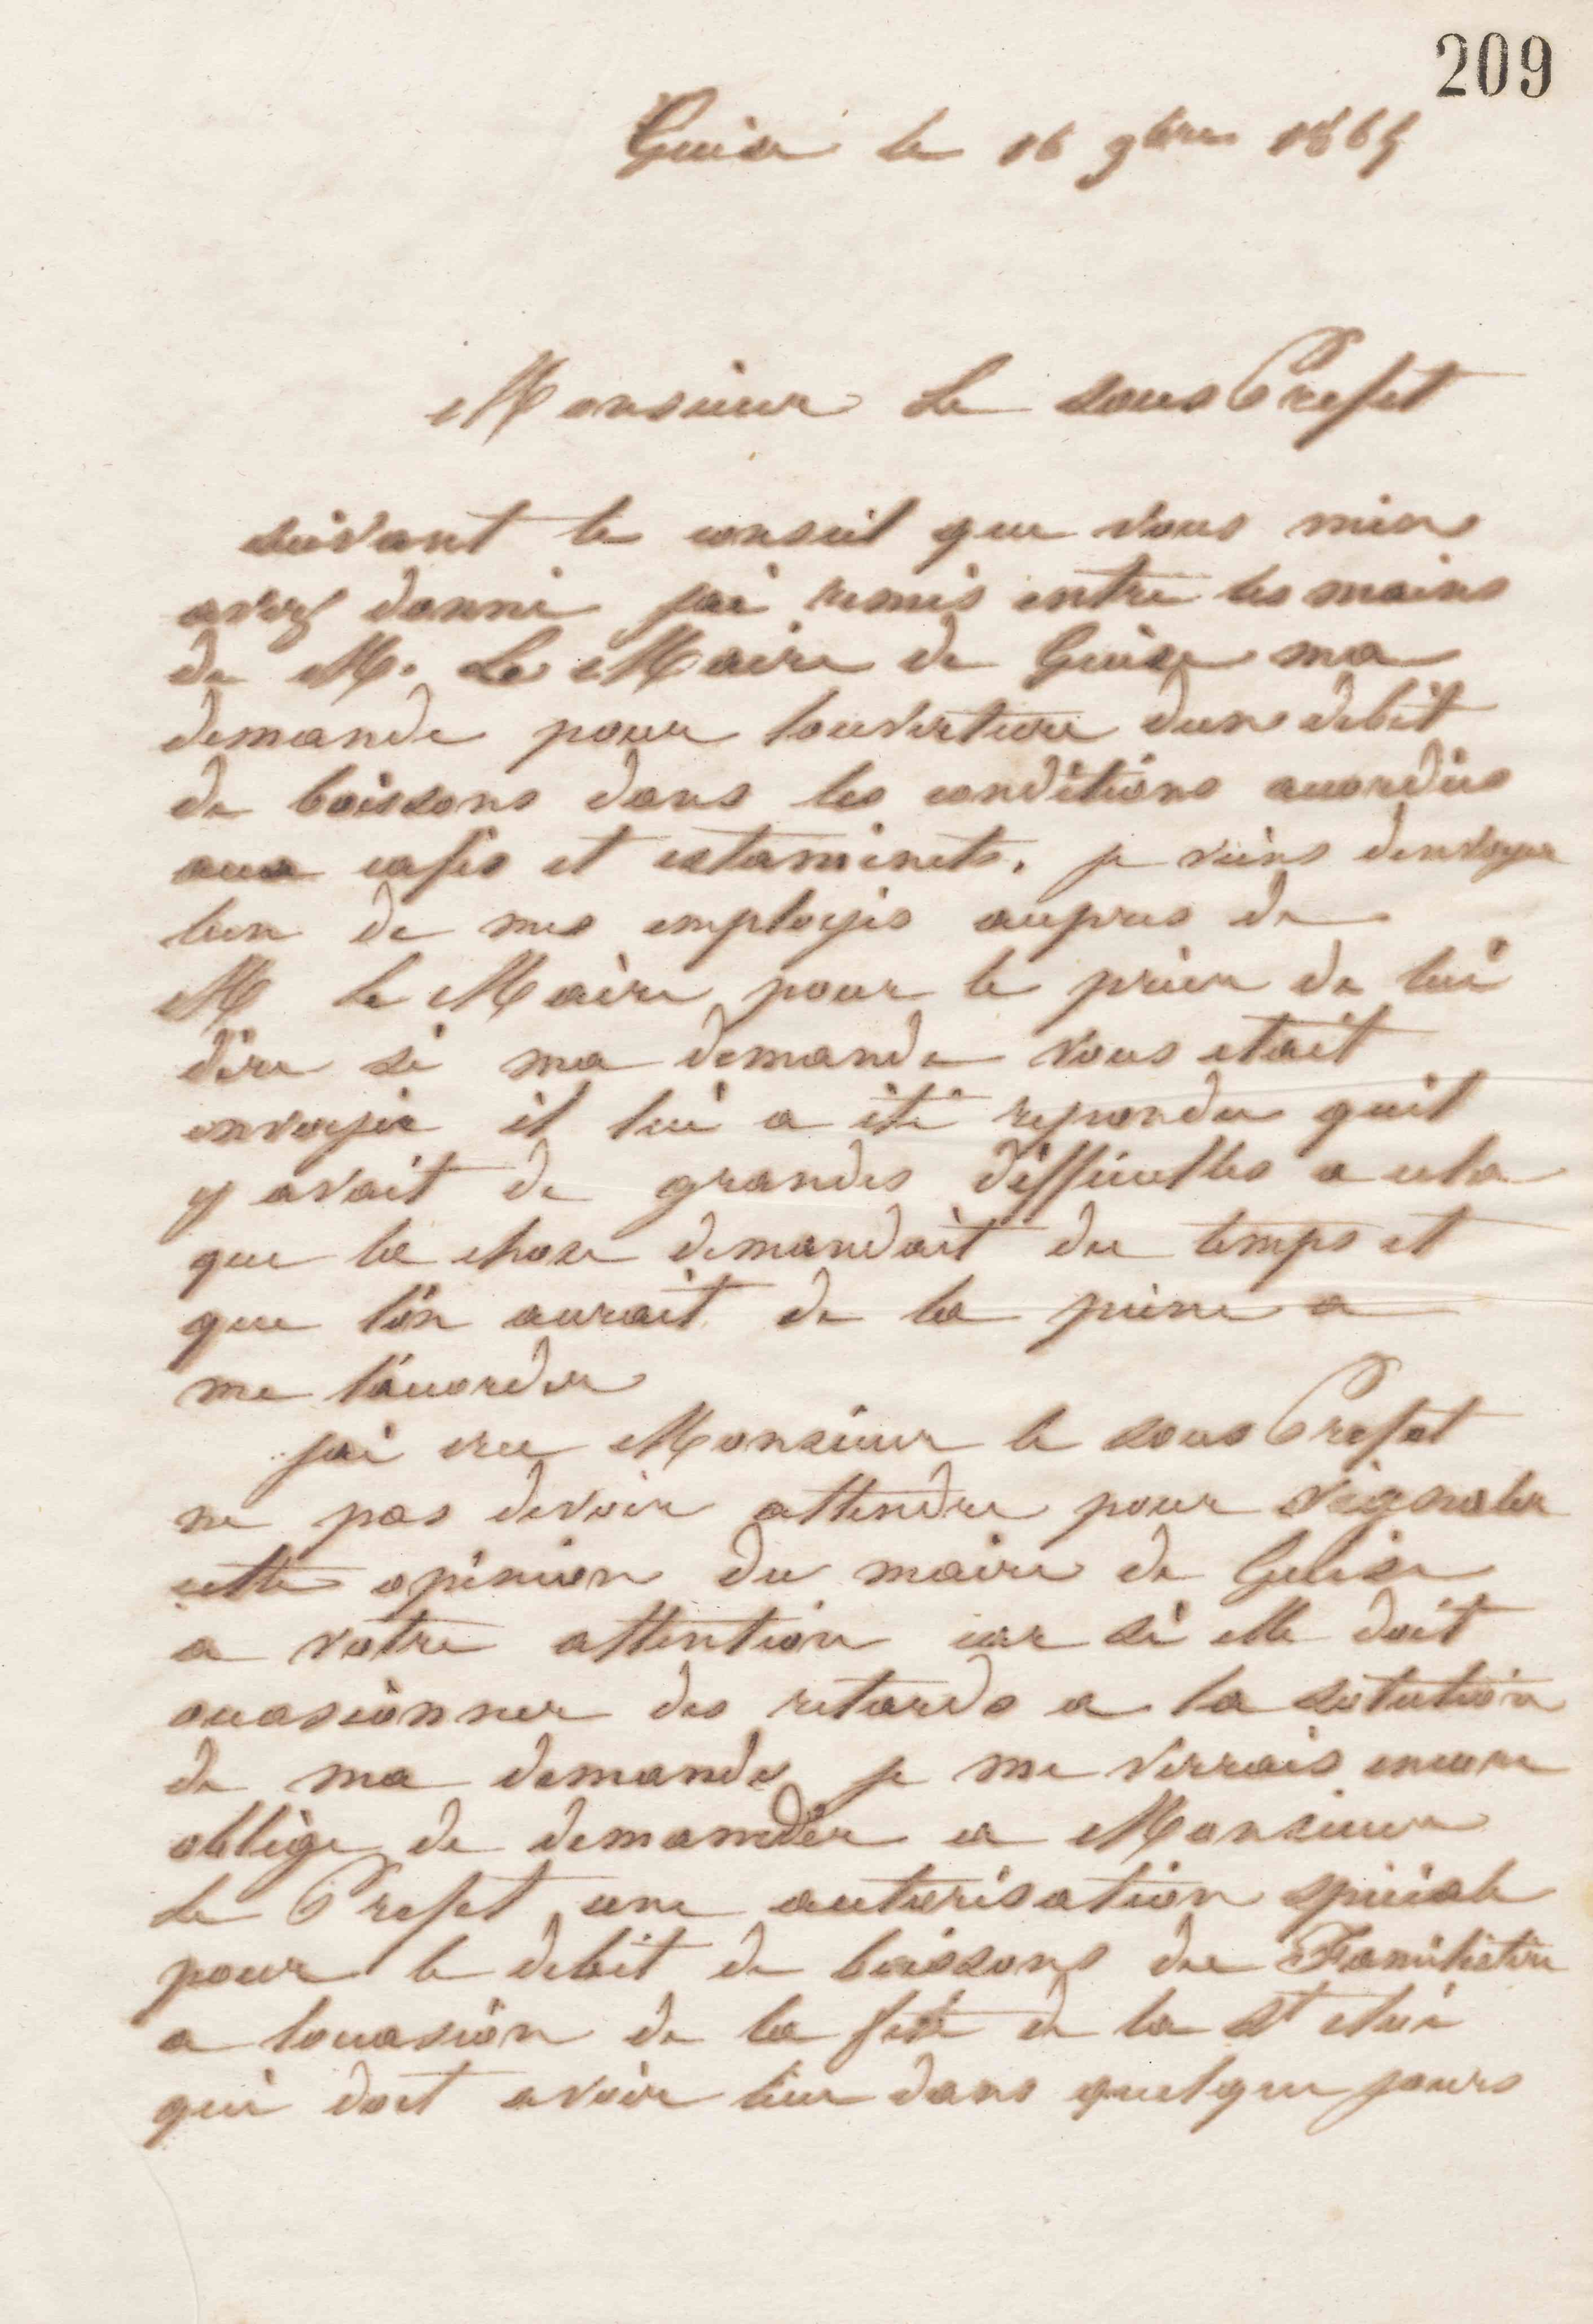 209
Guise le 16 9bre 1865
Monsieur Le sous Prefet
suivant le conseil que vous m'en
avez donné j'ai remis entre les mains
de M. Le Maire de Guise ma
demande pour louverture dun debit
de boissons dans les conditions accordées
aux cafés et estaminets. je viens denvoyer
lun de mes employés aupres de
M le Maire pour le prier de lui
dire si ma demande vous etait
envoyée il lui a été repondu quil
y avait de grandes difficultes a cela
que la chose demandait du temps et
que l'on aurait de la peine a
me l'accorder
jai cru Monsieur le sous Prefet
ne pas devoir attendre pour signaler
cette opinion du maire de Guise
a votre attention car si elle doit
occasionner des retards a la solution
de ma demande je me verrais encore
obligé de demander a Monsieur
Le Prefet une autorisation speciale
pour le debit de boissons du Familistère
a loccasion de la fete de la St eloi
qui doit avoir lieu dans quelque jours